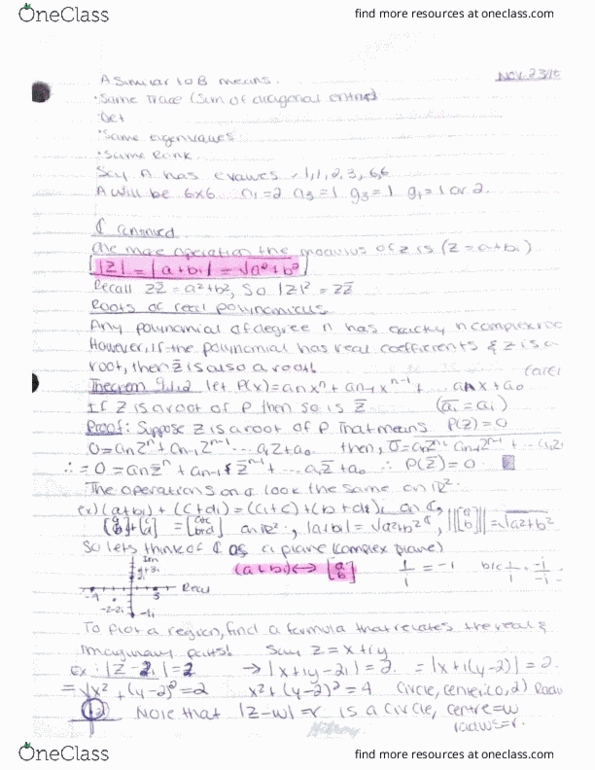 OneClass
find more resources at oneclass.com
Nov 23/15
A Similar to B means.
• Same Trace (Sum of diagonal entries)
• Det
• Same eigenvalues
• Same Rank
Say A has evalues 1, 1, 2, 3, 6, 6
A will be 6x6 a1=2 a3=1 g3=1 g1=1 or 2.
ℂ continued
One more operation the modulus of z is (z=a+bi)
|z| = |a+bi| = √a²+b²
Recall zz̄ = a²+b², So |z|² = zz̄
Roots of real polynomials
Any polynomial of degree n has exactly n complex roo
However, if the polynomial has real coefficients & z is a
root, then z̄ is also a root!
Theorem 9.1.2 let P(x)=anxⁿ+an-1xⁿ⁻¹+ ... a1x+a0
If z is a root of P then so is z̄ (āi=ai)
Proof: Suppose z is a root of P That means P(z)=0
0=anzⁿ+an-1zⁿ⁻¹... a1z+a0 then,
∴ P(z̄)=0
The operations on ℂ look the same on ℝ².
ex) (a+bi)+(c+di)=(a+c)+(b+d)i on ℂ,
[a b]+[c d]=[a+c b+d] on ℝ², |a+bi|=√a²+b², ||[a b]||=√a²+b²
So lets think of ℂ as a plane (complex plane)
Im
(a+bi)↔[a b]
Real
-4
-2-2i
To plot a region, find a formula that relates the real &
imaginary parts! Say z=x+iy
Ex: |z-2i|=2 → |x+iy-2i|=2. = |x+i(y-2)|=2.
=√x²+(y-2)²=2 x²+(y-2)²=4 Circle, center(0,2) Radiu
Note that |z-w|=r is a circle, centre=w
radius=r.
OneClass
find more resources at oneclass.com